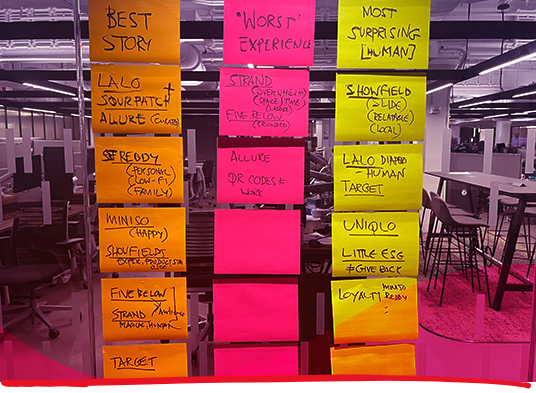 BEST
STORY
LALO +
SOURPATCH
ALLURE
FREDDY
(PERSONAL)
(LOW-FI)
(FAMILY)
MINISO
(HAPPY)
SHOWFIELDS
FIVE BELOW
STRAND
TARGET
'WORST'
EXPERIENCE
STRAND
(OVERWHELM)
(SPACE/TIME)
FIVE BELOW
(CROWDED)
ALLURE
QR CODES ≠
WORK
MOST
SURPRISING
[HUMAN]
SHOWFIELD
(SLIDE)
(RELATABLE)
(LOCAL)
LALO
- HUMAN
TARGET
UNIQLO
LITTLE ESG
#GIVE BACK
LOYALTY